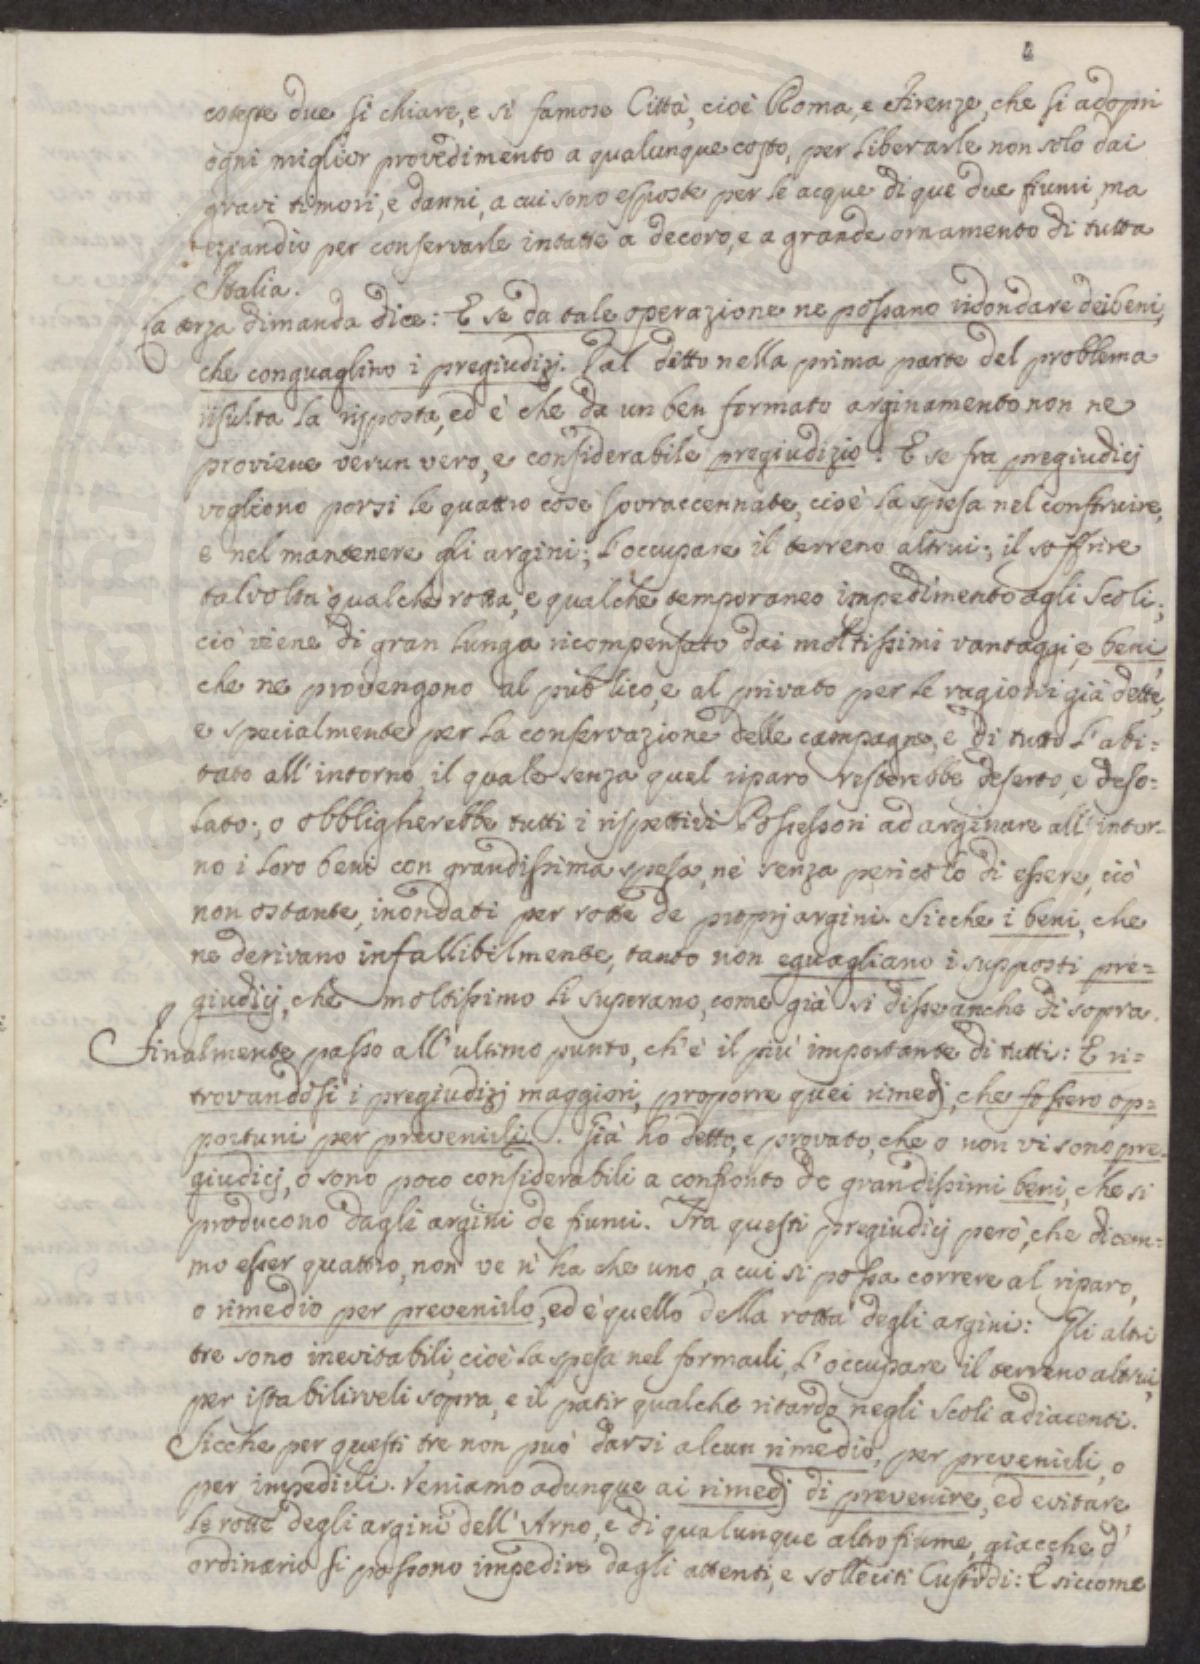 coteste due sì chiare, e sì famose Città, cioè Roma, e Firenze, che si adopri
ogni miglior provedimento a qualunque costo, per liberarle non solo dai
gravi timori, e danni, a cui sono esposte per le acque di que due fiumi, ma
eziandio per conservarle intatte a decoro, e a grande ornamento di tutta
Italia.
La terza dimanda dice: E se da tale operazione ne possano ridondare dei beni,
che conguaglino i pregiudizj. Dal detto nella prima parte del problema
risulta la risposta, ed è che da un ben formato arginamento non ne
proviene verun vero, e considerabile pregiudizio: E se fra pregiudicj
vogliono porsi le quattro cose sovraccennate, cioè la spesa nel construire,
e nel mantenere gli argini; l'occupare il terreno altrui; il soffrire
talvolta qualche rotta, e qualche temporaneo impedimento agli scoli;
ciò viene di gran lunga ricompensato dai moltissimi vantaggi, e beni,
che ne provengono al publico, e al privato per le ragioni già dette,
e specialmente per la conservazione delle campagne, e di tutto l'abi=
tato all'intorno, il quale senza quel riparo resterebbe deserto, e deso=
lato; o obbligherebbe tutti i rispettivi Possessori ad arginare all'intor-
no i loro beni con grandissima spesa, nè senza pericolo di essere, ciò
non ostante, inondati per rotte de proprj argini. Sicche i beni, che
ne derivano infallibilmente, tanto non eguagliano i supposti pre=
giudicj, che moltissimo li superano, come già si disse anche di sopra.
Finalmente passo all'ultimo punto, ch'è il più importante di tutti: E ri=
trovandosi i pregiudizj maggiori, proporre quei rimedj, che fossero op=
portuni per prevenirli. Già ho detto, e provato, che o non vi sono pre-
giudicj, o sono poco considerabili a confronto de grandissimi beni, che si
producono dagli argini de fiumi. Tra questi pregiudicj però, che dicem=
mo esser quattro, non ve n'ha che uno, a cui si possa correre al riparo,
o rimedio per prevenirlo, ed è quello della rotta degli argini: Gli altri
tre sono inevitabili, cioè la spesa nel formarli, l'occupare il terreno altrui,
per istabilirveli sopra, e il patir qualche ritardo negli scoli adiacenti.
Sicche per questi tre non può darsi alcun rimedio, per prevenirli, o
per impedirli. Veniamo adunque ai rimedj di prevenire, ed evitare
le rotte degli argini dell'Arno, e di qualunque altro fiume, giacche d'
ordinario si possono impedire dagli attenti, e solleciti Custodi: E siccome